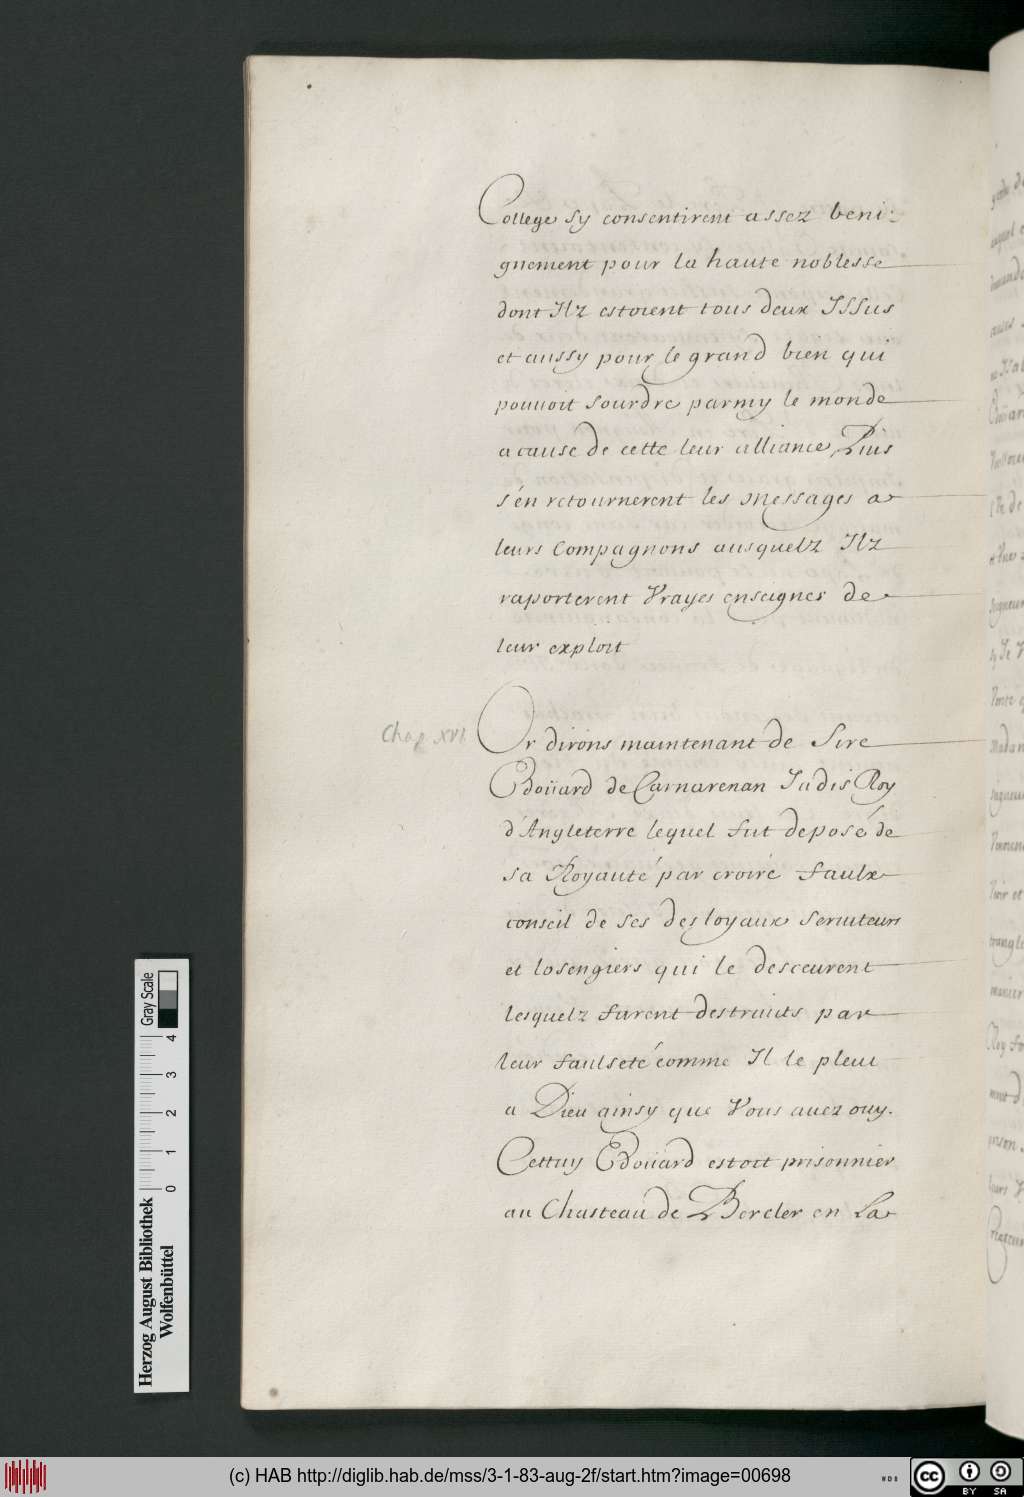 College sy consentirent assez beni-
gnement pour la haute noblesse
dont Ilz estoient tous deux Issus
et aussy pour le grand bien qui
pouuoit sourdre parmy le monde
a cause de cette leur alliance, Puis
s'en retournerent les Messages a
leurs Compagnons ausquelz Ilz
raporterent Vrayes enseignes de
leur exploit
Chap XVI.
Or dirons maintenant de Sire
Edoüard de Carnarenan Jadis Roy
d'Angleterre lequel fut deposé de
sa Royauté par croire faulx
conseil de ses desloyaux seruiteurs
et losengiers qui le desceurent
lesquelz furent destruits par
leur faulseté comme Il le pleut
a Dieu ainsy que Vous auez ouy.
Cettuy Edoüard estoit prisonnier
au Chasteau de Bercler en La
Herzog August Bibliothek
Wolfenbüttel
0 1 2 3 4
Gray Scale
(c) HAB http://diglib.hab.de/mss/3-1-83-aug-2f/start.htm?image=00698
WDB
cc
BY SA